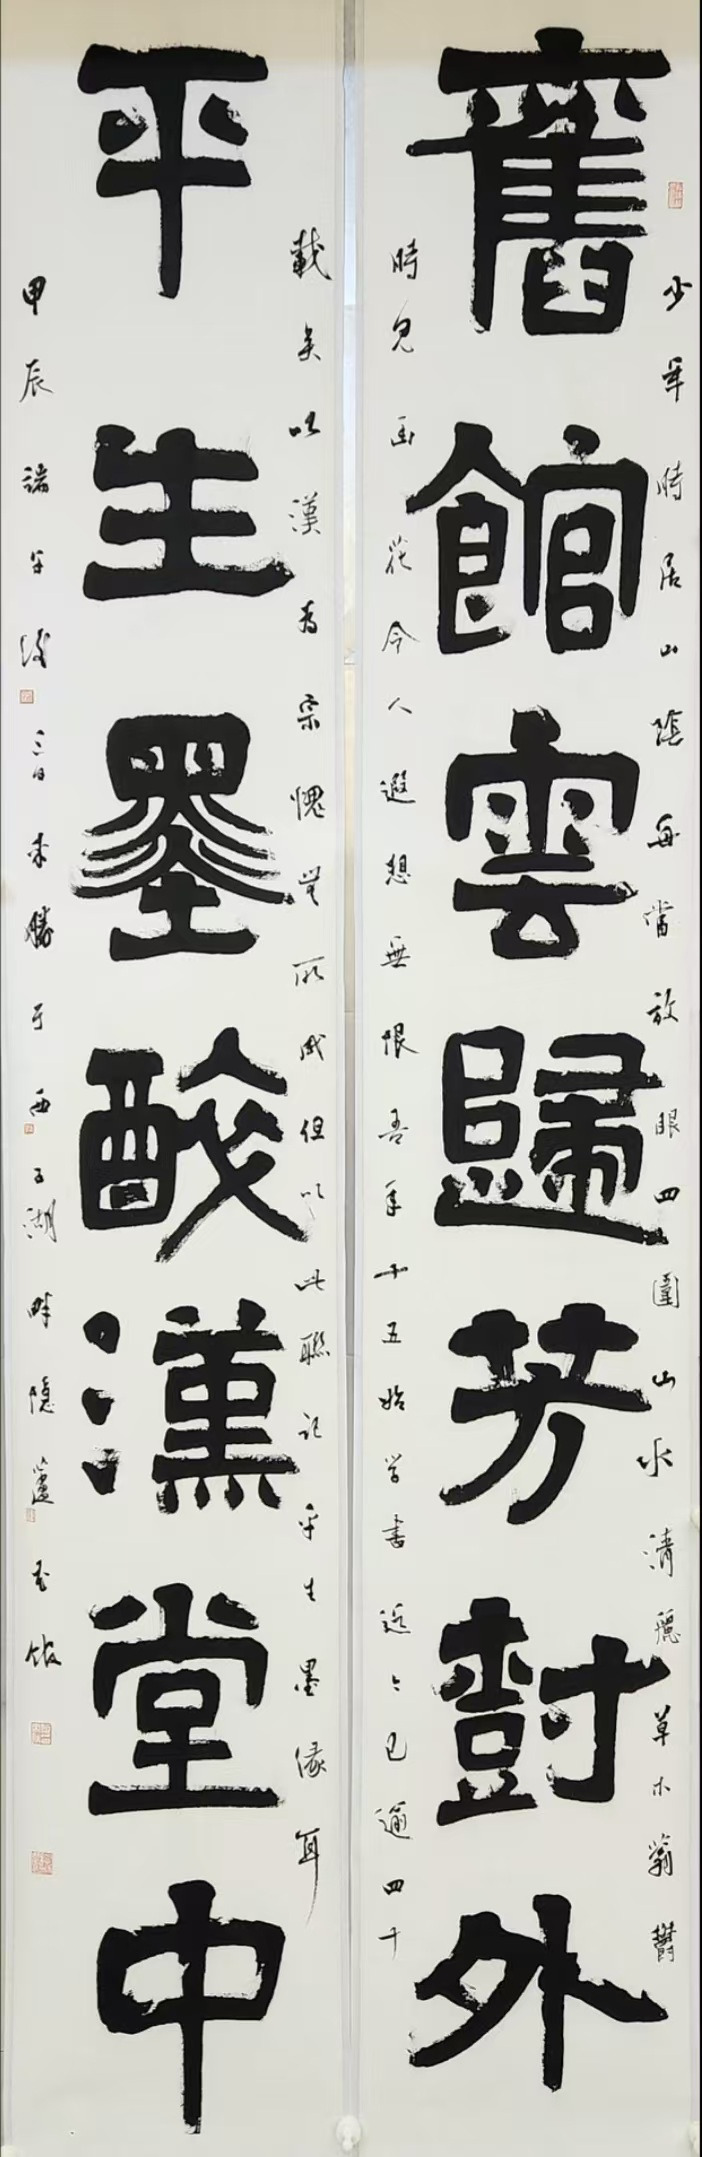 舊館雲歸芳尌外
少年時居山陰每當放眼四圍山水清麗草木蓊鬱
時見幽花令人遐想無限吾年十五始学書近々已逾四十
平生墨醉漢堂中
載矣以漢為宗愧無所成但以此聯記平生墨緣耳
甲辰端午後三日來勝于西子湖畔隱廬